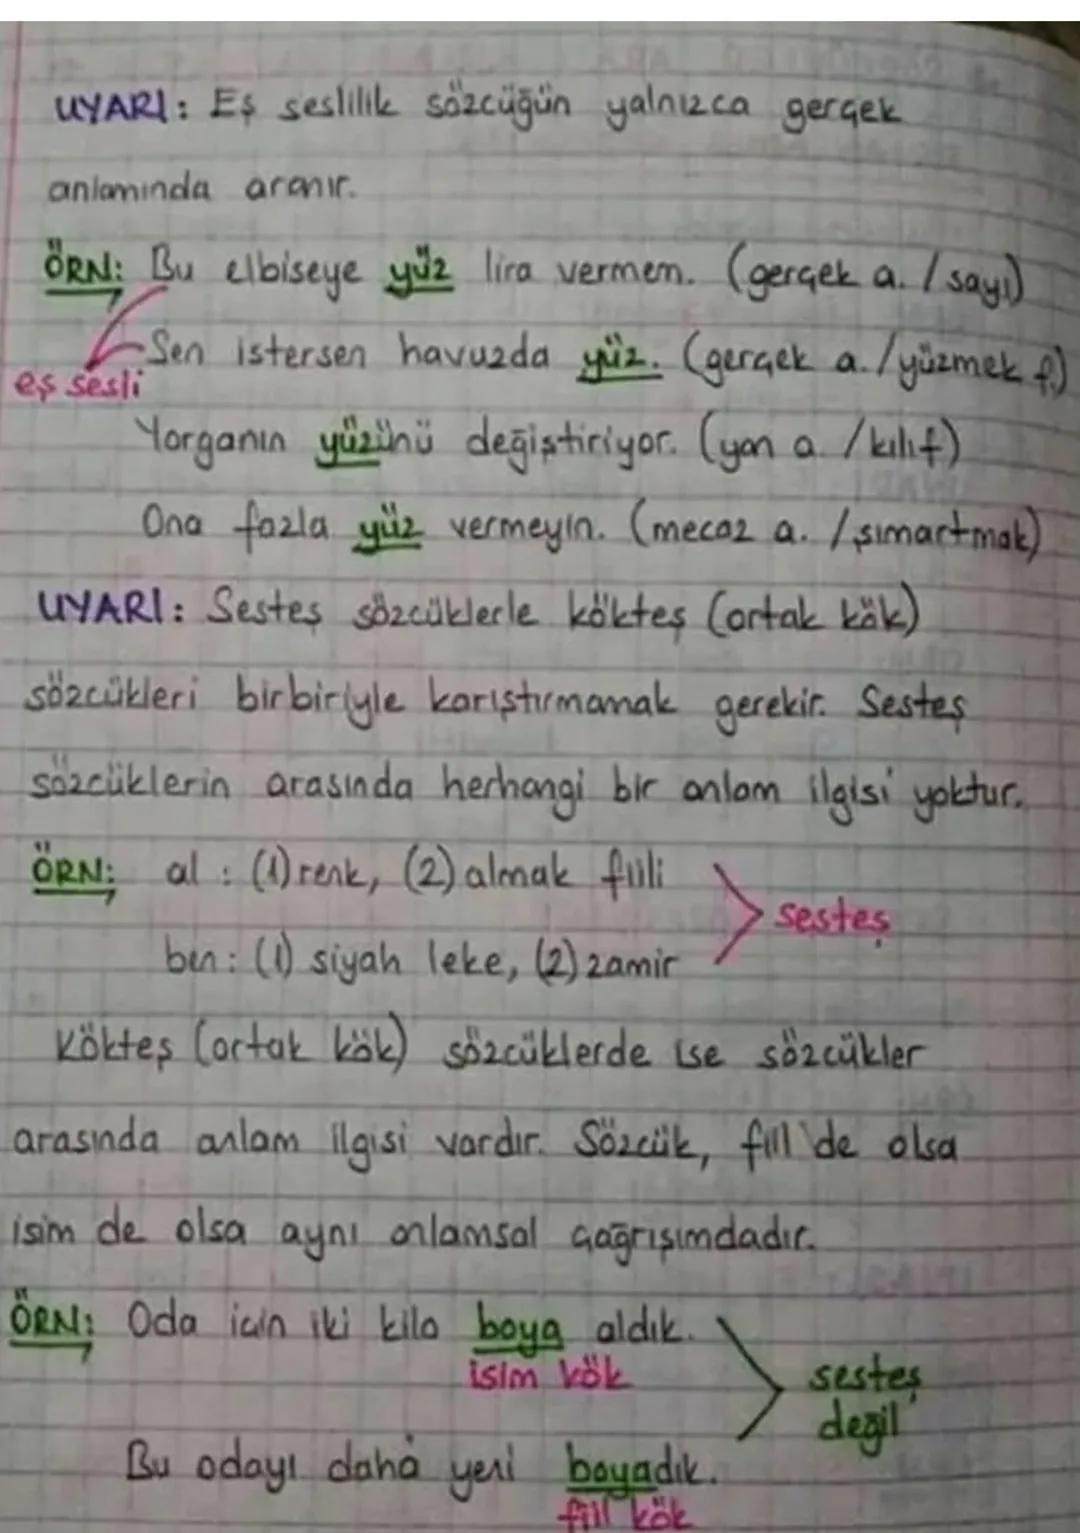 UYARI: Eş seslilik sözcüğün yalnızca gerçek
anlamında aranır.
ÖRN: Bu elbiseye yüz lira vermem. (gerçek a. / sayı)
Sen istersen havuzda yüz. (gerçek a./yüzmek f.)
eş sesli
Yorganın yüzünü değiştiriyor. (yan a. / kılıf)
Ona fazla yüz vermeyin. (mecaz a. / şımartmak)
UYARI: Sesteş sözcüklerle kökteş (ortak kök)
sözcükleri birbiriyle karıştırmamak gerekir. Sesteş
sözcüklerin arasında herhangi bir anlam ilgisi yoktur.
ÖRN: al : (1) renk, (2) almak fiili
sesteş
ben: (1) siyah leke, (2) zamir
Kökteş (ortak kök) sözcüklerde ise sözcükler
arasında anlam ilgisi vardır. Sözcük, fiil de olsa
isim de olsa aynı anlamsal çağrışımdadır.
ÖRN: Oda için iki kilo boya aldık.
isim kök
sesteş
değil
Bu odayı daha yeni boyadık.
fiil kök